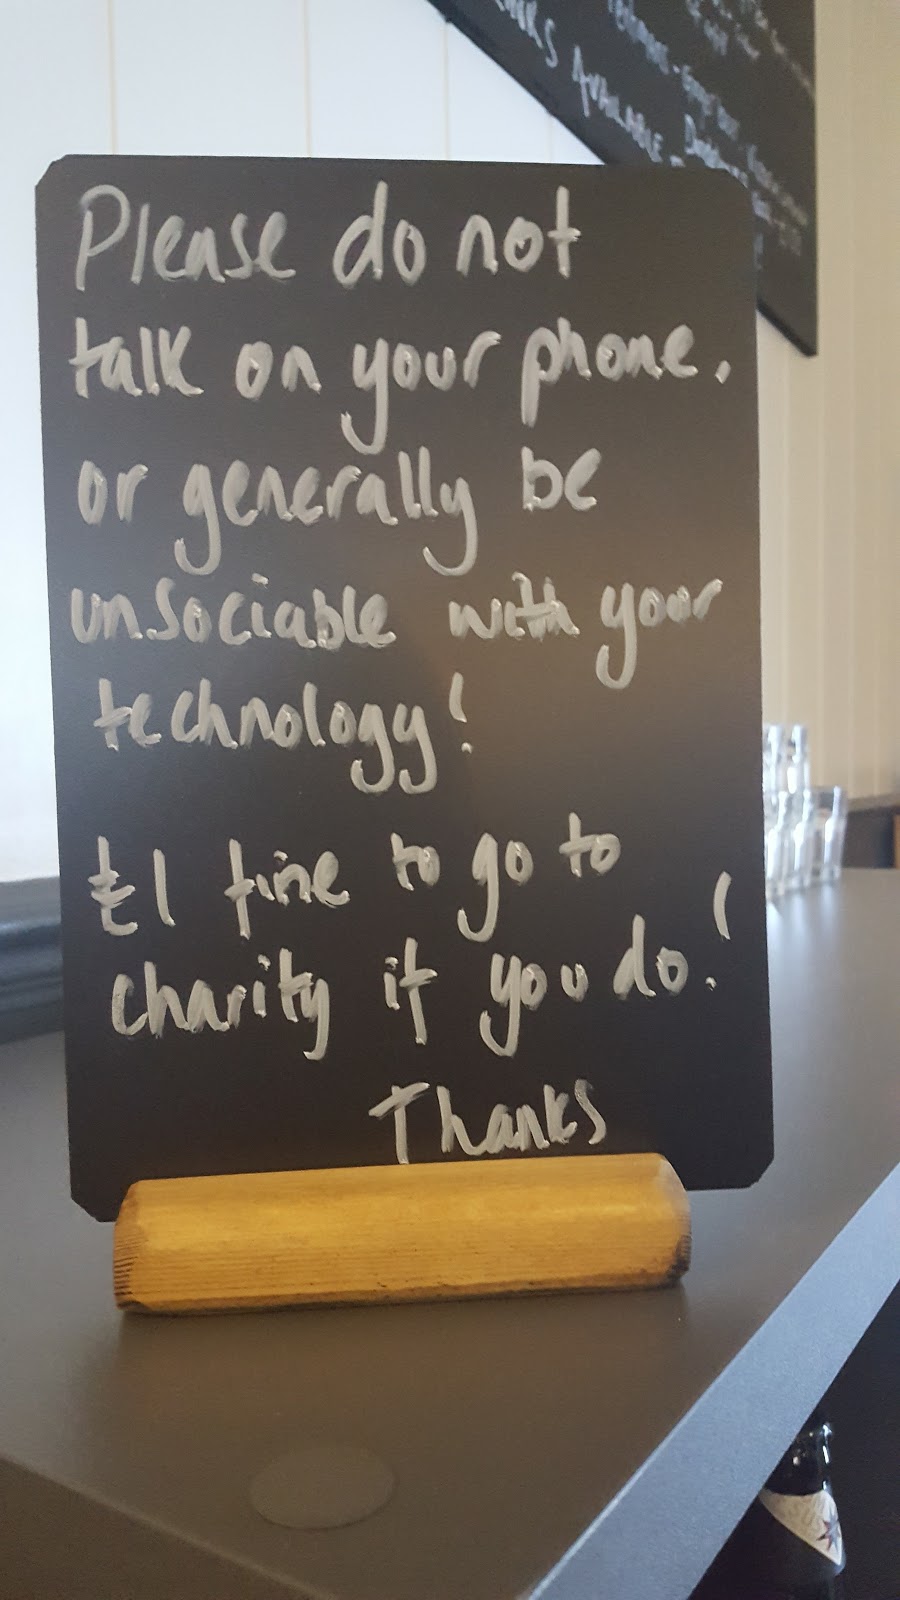 Please do not
talk on your phone.
or generally be
unsociable with your
technology!
£1 fine to go to
charity if you do!
Thanks
AVAILABLE